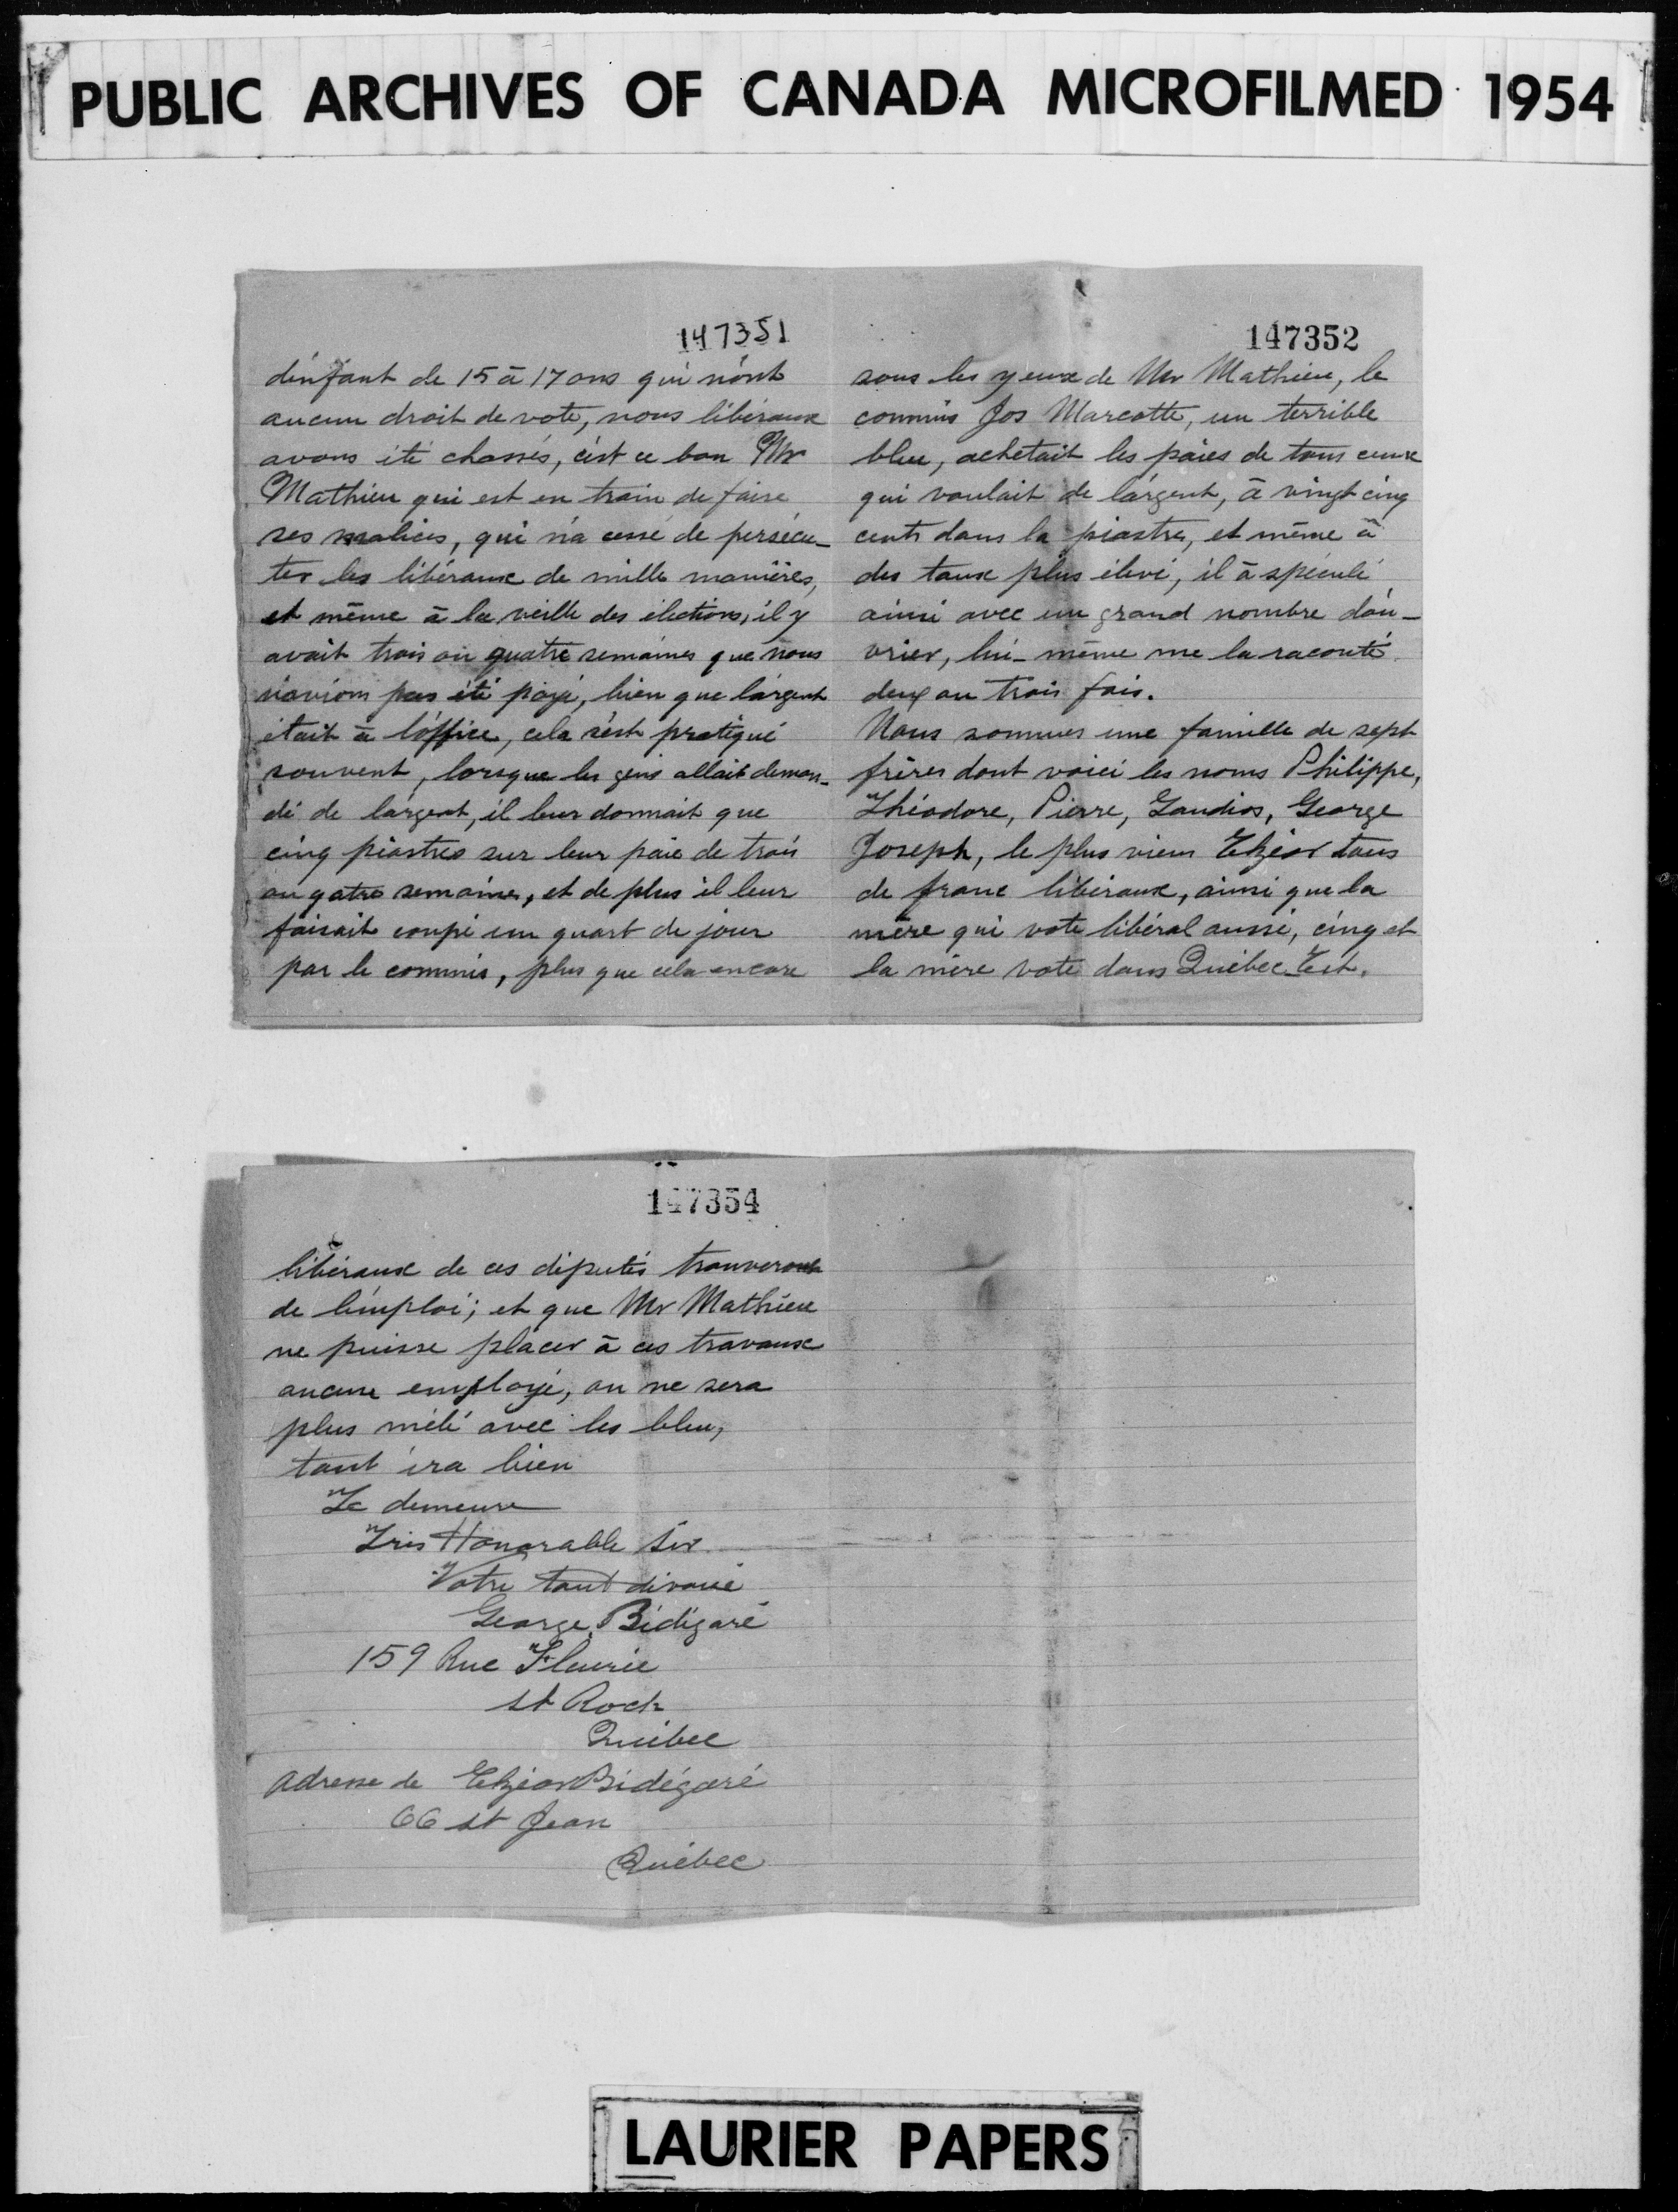 PUBLIC ARCHIVES OF CANADA MICROFILMED 1954
147351
d'enfant de 15 à 17 ans qui n'ont
aucun droit de vote, nous libéraux
avons été chassés, c'est ce bon Mr
Mathieu qui est en train de faire
ses malices, qui n'a cessé de persécu-
ter les libéraux de mille manières,
et même à la veille des élections, il y
avait trois ou quatre semaines que nous
n'avions pas été payé, bien que l'argent
était à l'office, cela s'est pratiqué
souvent, lorsque les gens allait deman-
dé de l'argent, il leur donnait que
cinq piastres sur leur paie de trois
ou qatre semaines, et de plus il leur
faisait coupé un quart de jour
par le commis, plus que cela encore
147352
sous les yeux de Mr Mathieu, le
commis Jos Marcotte, un terrible
bleu, achetait les paies de tous ceux
qui voulait de l'argent, à vingt cinq
cents dans la piastres, et même à
des taux plus élevé, il à spéculé
ainsi avec un grand nombre d'ou-
vrier, lui-même me la raconté
deux ou trois fois.
Nous sommes une famille de sept
frères dont voici les noms Philippe,
Théodore, Pierre, Gaudios, George
Joseph, le plus vieux Elzéar tous
de franc libéraux, ainsi que la
mère qui vote libéral aussi, cinq et
la mère vote dans Québec-Est.
147354
libéraux de ces députés trouveront
de l'emploi; et que Mr Mathieu
ne puisse placer à ces travaux
aucune employé, on ne sera
plus mêlé avec les bleu,
tout ira bien
Je demeure
Très Honorable Sir
Votre tout dévoué
George Bidégaré
159 Rue Fleurie
St Roch
Québec
Adresse de Elzéar Bidégaré
66 st Jean
Québec
LAURIER PAPERS